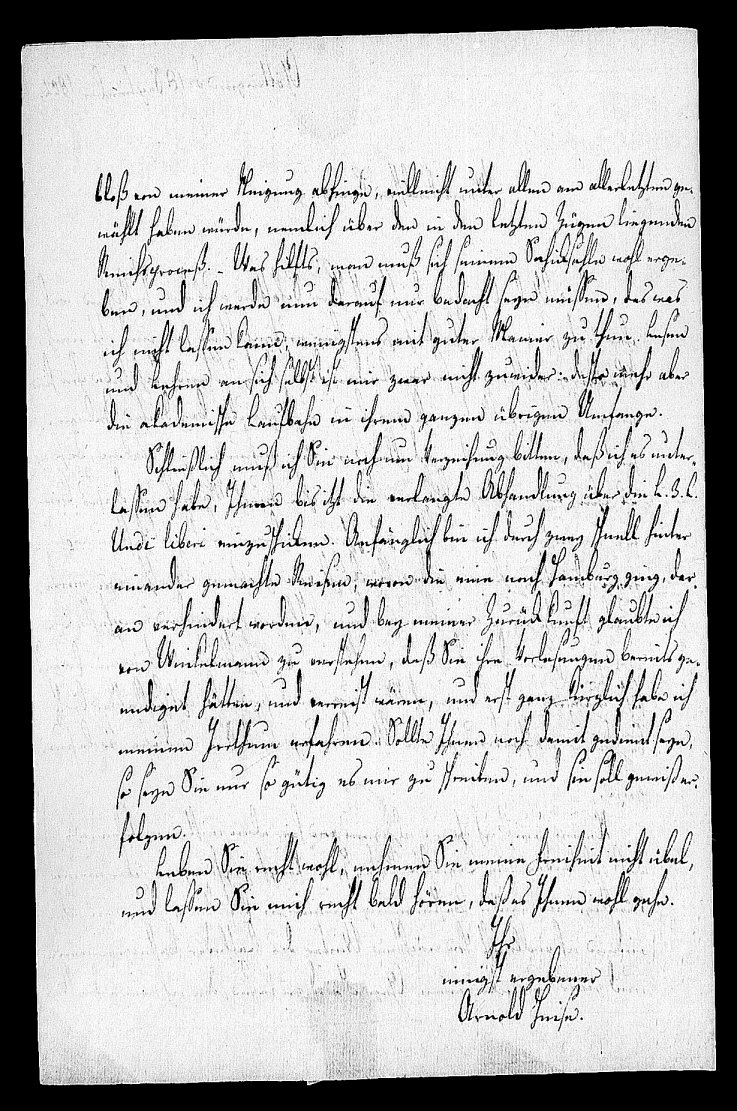 bloß von meiner Neigung abhinge, vielleicht unter allen am allerletzten ge-
wählt haben würde, nemlich über den in den letzten Zügen liegenden
Reichsproceß. Was hilfts, man muß sich seinem Schicksahle wohl erge-
ben, und ich werde nun darauf nur bedacht seyn müssen, das was
ich nicht lassen kann, wenigstens mit guter Manier zu thun. Lesen
und Lehren an sich selbst ist mir zwar nicht zuwider: desto mehr aber
die akademische Laufbahn in ihrem ganzen übrigen Umfange.
Schließlich muß ich Sie noch um Verzeihung bitten, daß ich es unter-
lassen habe, Ihnen bis itzt die verlangte Abhandlung über die L. 3. C.
Unde liberi einzuschicken. Anfänglich bin ich durch zwey schnell hinter
einander gemachte Reisen, wovon die eine nach Hamburg ging, dar-
an verhindert worden, und bey meiner Zurückkunft glaubte ich
von Winkelmann zu verstehen, daß Sie ihre Vorlesungen bereits ge-
endiget hätten, und verreist wären, und erst ganz kürzlich habe ich
meinen Irrthum erfahren. Sollte Ihnen noch damit gedient seyn,
so seyn Sie nur so gütig es mir zu schreiben, und sie soll gewiß er-
folgen.
Leben Sie recht wohl, nehmen Sie meine Freiheit nicht übel,
und lassen Sie mich recht bald hören, daß es Ihnen wohl gehe.
Ihr
innigst ergebener
Arnold Heise.